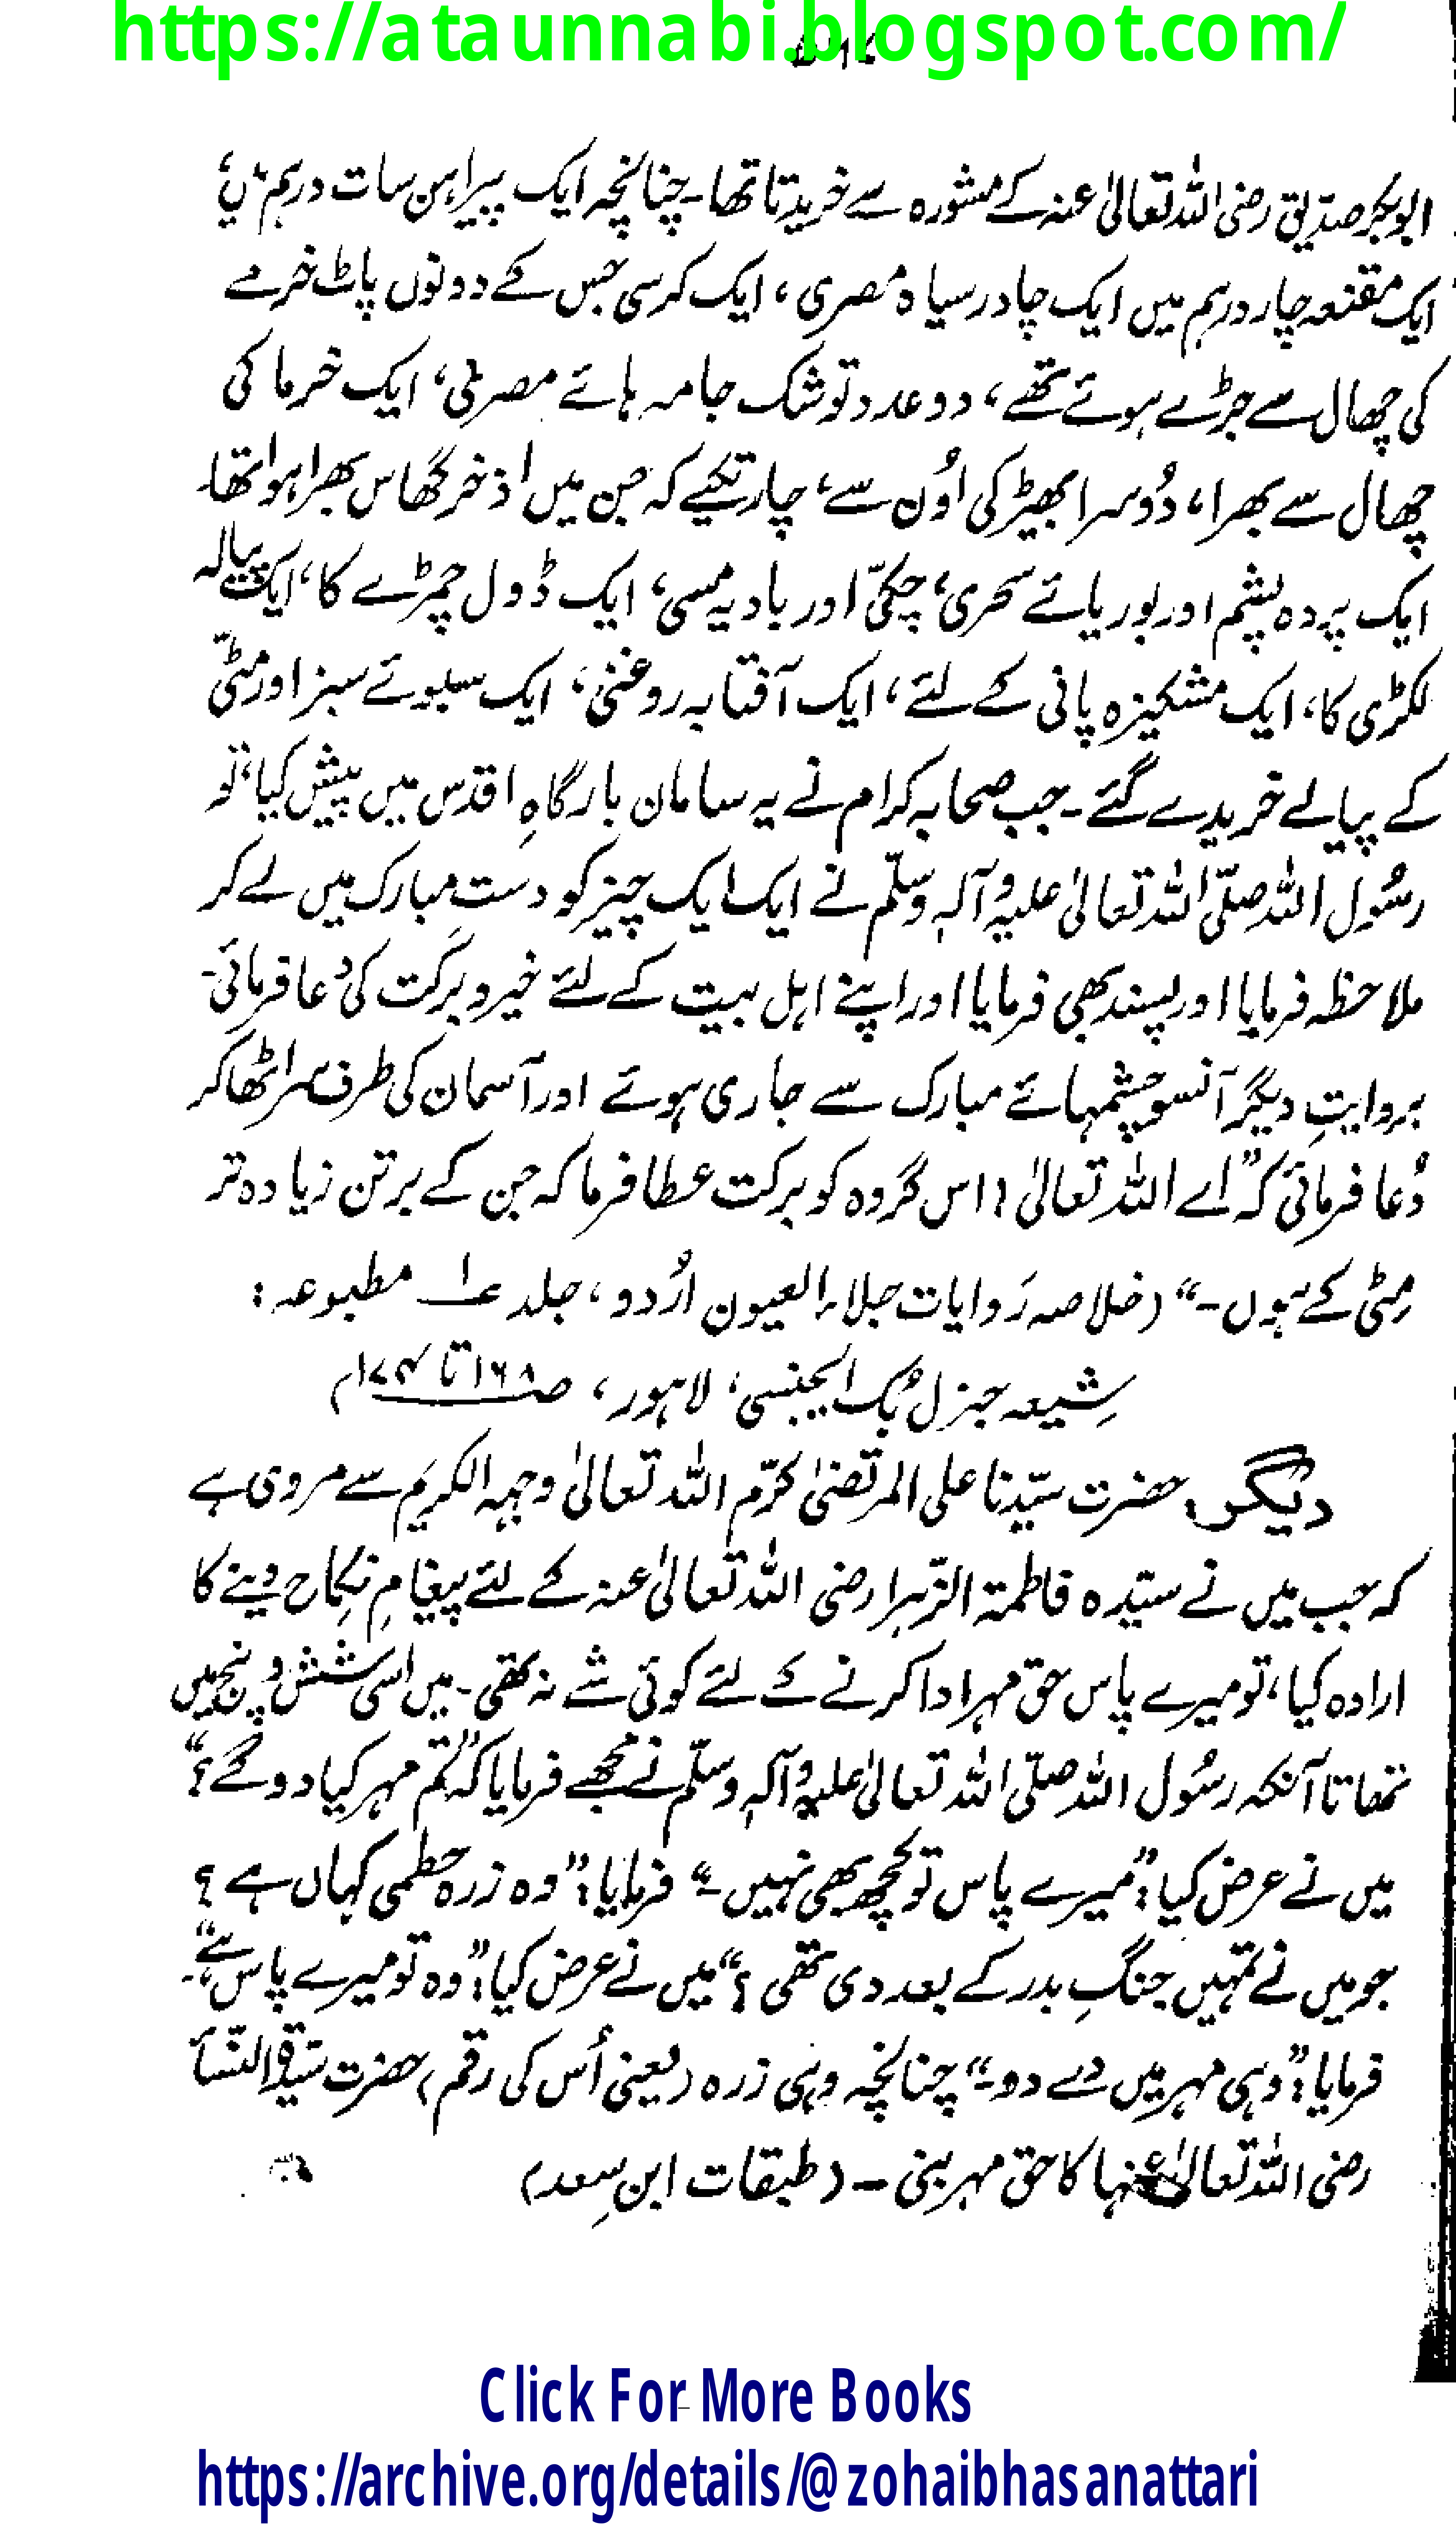 https://ataunnabi.blogspot.com/
ابوبکر صدّیق رضی اللہ تعالیٰ عنہ کے مشورہ سے خریدتا تھا۔ چنانچہ ایک پیراہن سات درہم میں،
ایک مقنعہ چار درہم میں ایک چادر سیاہ مصری، ایک کرسی جس کے دونوں پاٹ خرمے
کی چھال سے جڑے ہوئے تھے، دو عدد توشک جامہ ہائے مصری، ایک خرما کی
چھال سے بھرا، دُوسرا بھیڑ کی اُون سے، چار تکیے کہ جن میں اذخر گھاس بھرا ہوا تھا۔
ایک پردہ پشم اور بوریائے سحری، چکیّ اور بادیہ مسی، ایک ڈول چمڑے کا، ایک پیالہ
لکڑی کا، ایک مشکیزہ پانی کے لئے، ایک آفتابہ روغنی، ایک سبوئے سبز اور مٹّی
کے پیالے خریدے گئے۔ جب صحابہ کرام نے یہ سامان بارگاہِ اقدس میں پیش کیا، تو
رسُول اللہ صلّی اللہ تعالیٰ علیہ وآلہٖ وسلّم نے ایک ایک چیز کو دستِ مبارک میں لے کر
ملاحظہ فرمایا اور پسند بھی فرمایا اور اپنے اہل بیت کے لئے خیر و برکت کی دُعا فرمائی۔
بروایتِ دیگر آنسو چشمہائے مبارک سے جاری ہوئے اور آسمان کی طرف سر اٹھا کر
دُعا فرمائی کہ ”اے اللہ تعالیٰ! اس گروہ کو برکت عطا فرما کہ جن کے برتن زیادہ تر
مِٹی کے ہوں۔“ (خلاصہ رَوایات جلاء العیون اُردو، جلد ۱ مطبوعہ:
شِیعہ جنرل بُک ایجنسی، لاہور، ص ۱۶۸ تا ۱۷۴)
دیگر، حضرت سیّدنا علی المرتضیٰ کرّم اللہ تعالیٰ وجہہ الکریم سے مروی ہے
کہ جب میں نے سیّدہ فاطمۃ الزّہرا رضی اللہ تعالیٰ عنہ کے لئے پیغامِ نِکاح دینے کا
ارادہ کیا، تو میرے پاس حق مہر ادا کرنے کے لئے کوئی شے نہ تھی۔ میں اسی شش و پنج میں
تھا تا آنکہ رسُول اللہ صلّی اللہ تعالیٰ علیہ وآلہٖ وسلّم نے مجھے فرمایا کہ ”تم مہر کیا دو گے؟“
میں نے عرض کیا: ”میرے پاس تو کچھ بھی نہیں۔“ فرمایا: ”وہ زرہ حطمی کہاں ہے؟
جو میں نے تمہیں جنگِ بدر کے بعد دی تھی؟“ میں نے عرض کیا: ”وہ تو میرے پاس ہے۔“
فرمایا: ”وہی مہر میں دے دو۔“ چنانچہ وہی زرہ (یعنی اُس کی رقم) حضرت سیّدۃ النّسآ
رضی اللہ تعالیٰ عنہا کا حق مہر بنی۔ (طبقات ابنِ سعد)
Click For More Books
https://archive.org/details/@zohaibhasanattari